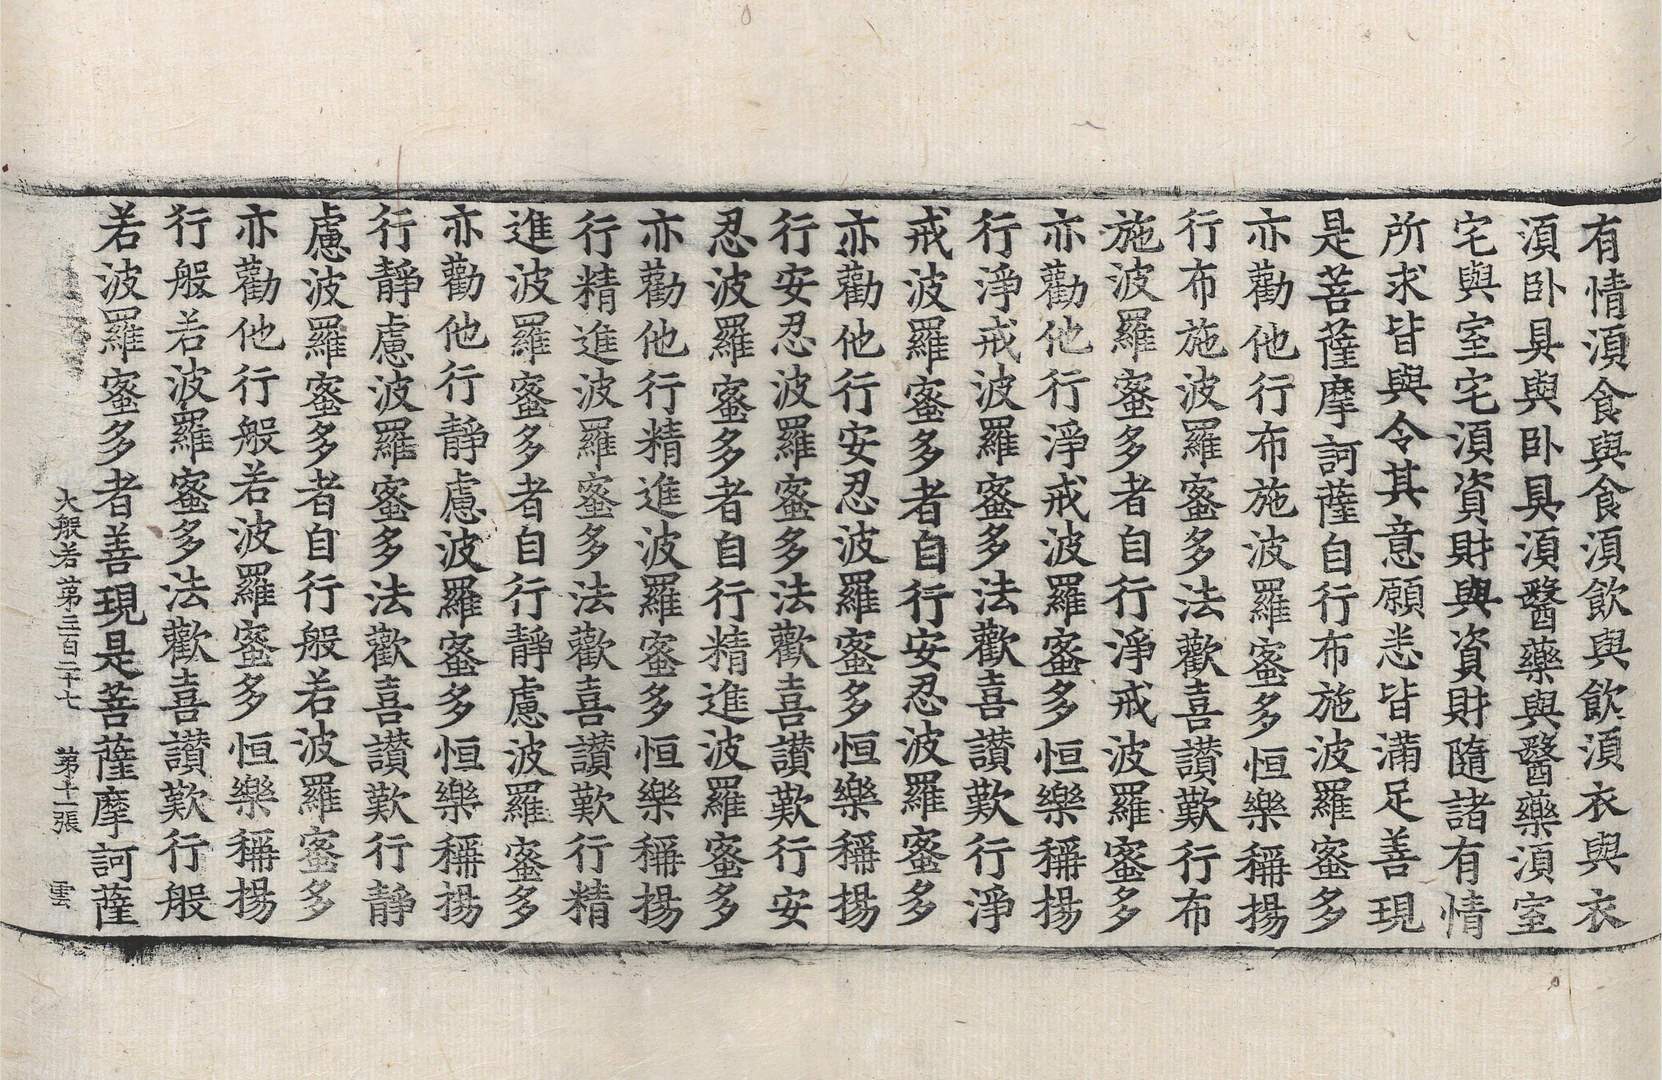 有情湏食與食湏飲與飲湏衣與衣
湏卧具與卧具湏醫藥與醫藥湏室
宅與室宅湏資財與資財隨諸有情
所求皆與令其意願悉皆滿足善現
是菩薩摩訶薩自行布施波羅蜜多
亦勸他行布施波羅蜜多恒樂稱揚
行布施波羅蜜多法歡喜讚歎行布
施波羅蜜多者自行淨戒波羅蜜多
亦勸他行淨戒波羅蜜多恒樂稱揚
行淨戒波羅蜜多法歡喜讚歎行淨
戒波羅蜜多者自行安忍波羅蜜多
亦勸他行安忍波羅蜜多恒樂稱揚
行安忍波羅蜜多法歡喜讚歎行安
忍波羅蜜多者自行精進波羅蜜多
亦勸他行精進波羅蜜多恒樂稱揚
行精進波羅蜜多法歡喜讚歎行精
進波羅蜜多者自行靜慮波羅蜜多
亦勸他行靜慮波羅蜜多恒樂稱揚
行靜慮波羅蜜多法歡喜讚歎行靜
慮波羅蜜多者自行般若波羅蜜多
亦勸他行般若波羅蜜多恒樂稱揚
行般若波羅蜜多法歡喜讚歎行般
若波羅蜜多者善現是菩薩摩訶薩
大般若第三百二十七 第十一張 雲